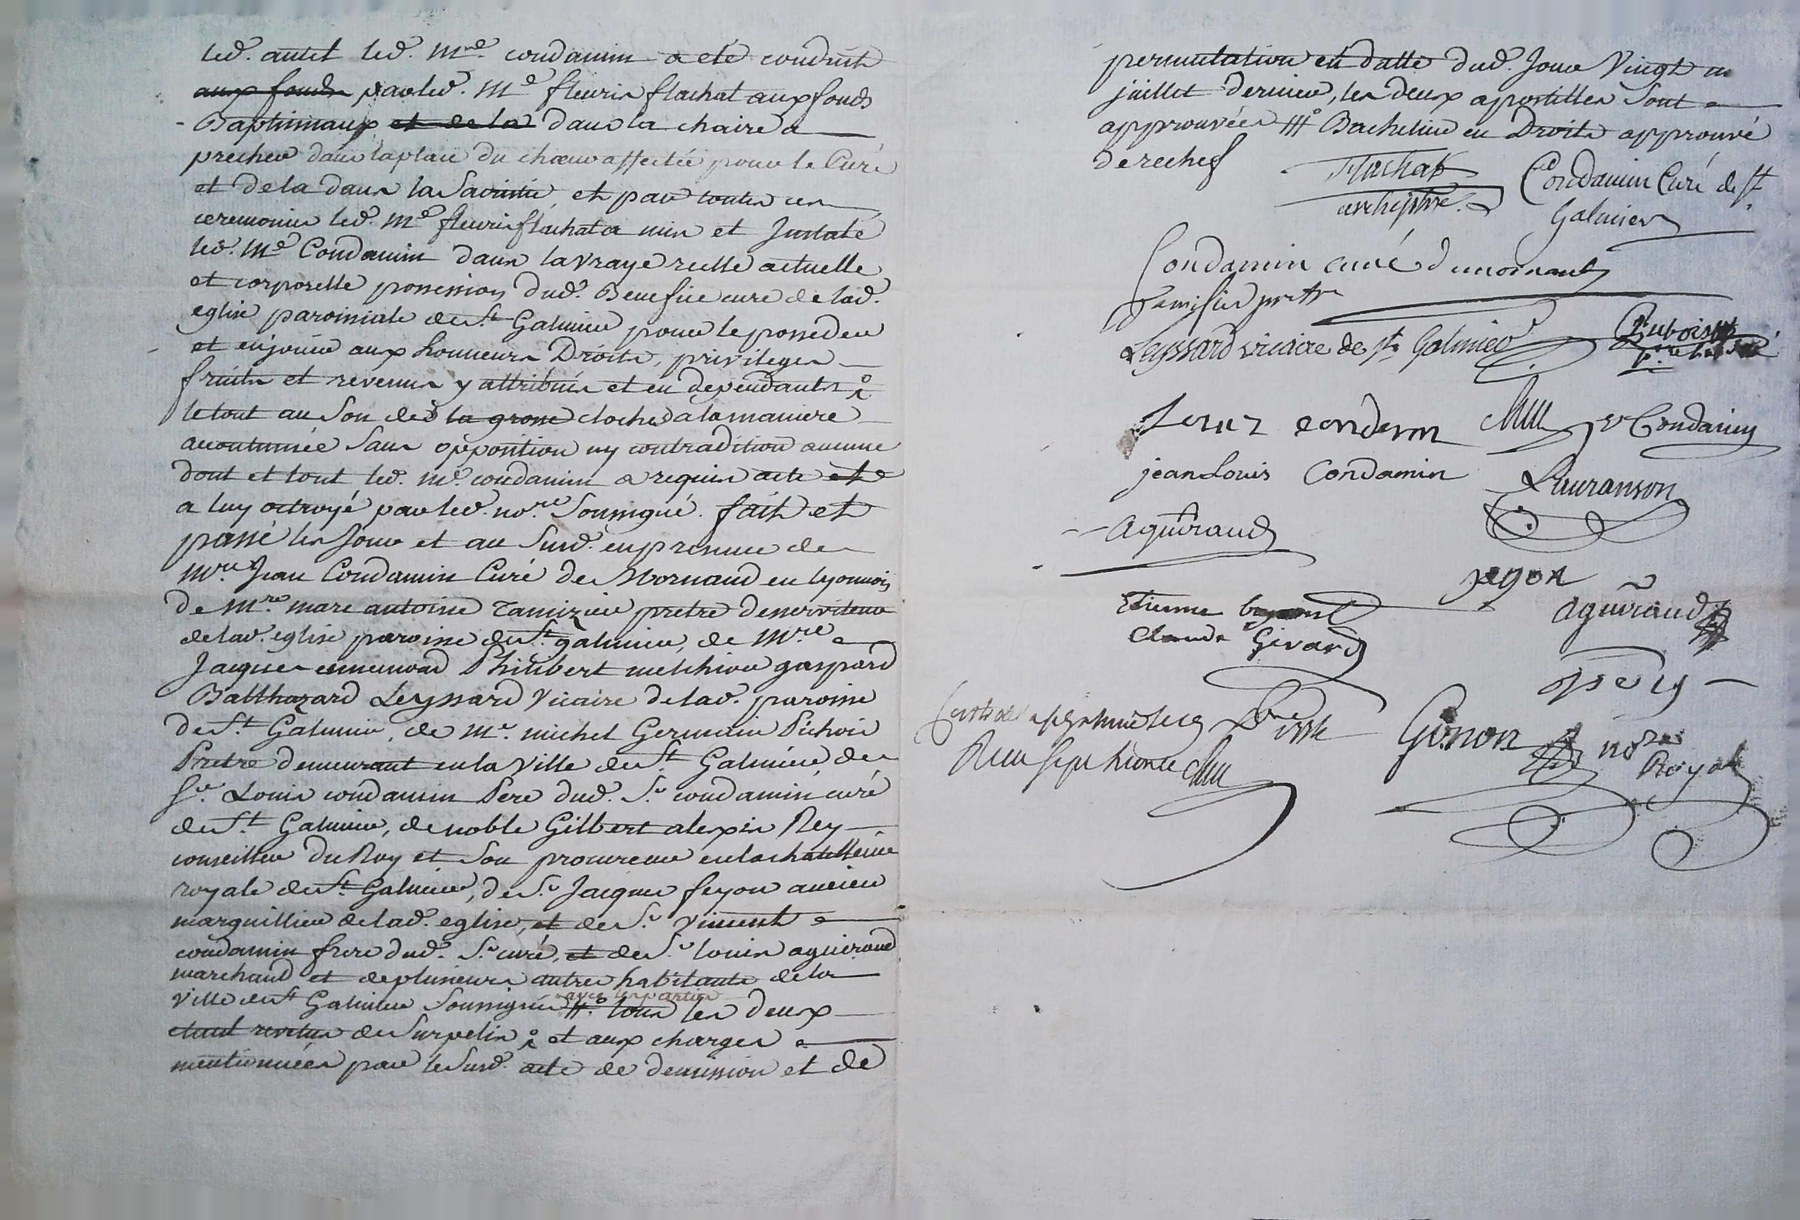 led. autel led. Mre condamin a eté conduit
aux fonds par led. Me fleuris flachat aux fonds
Baptismaux et de la dans la chaire a
precher dans la place du chœur affectée pour le Curé
et de la dans la Sacristie et par toutes ces
ceremonies led. Me fleuris flachat a mis et Instalé
led. Me Condamin dans la vraye reelle actuelle
et corporelle possession dud. Benefice cure de lad.
eglise paroissiale de St Galmier pour le posseder
et en jouir aux honneurs Droits, privileges
fruits et revenus y attribués et en dependants
le tout au Son des la grosse cloches a la maniere
accoutumée Sans opposition ny contradiction aucune
dont et tout led. me. condamin a requis acte et
a luy octroyé par led. nore Soussigné. fait et
passé les Jour et an Susd. en presence de
Mre Jean Condamin Curé de Mornand en lyonnois
de Mre marc antoine Tamizier pretre desserviteur
de lad. eglise paroisse de St galmier, de Mre
Jacques Philibert melchior gaspard
Balthazard Leyssard Vicaire de lad. paroisse
de St Galmier, de Me. michel Germain Pichois
Pretre demeurant en la Ville de St Galmier de
Sr Louis condamin Pere dud. Sr condamin curé
de St Galmier, de noble Gilbert alexis Rey
conseiller du Roy et Son procureur en la chatellenie
royale de St Galmier, de Sr Jacques feyon ancien
marguillier de lad. eglise, et de Sr Vincent
condamin frere dud. Sr curé, et de Sr louis aguiraud
marchand et de plusieurs autres habitants de la
ville de St Galmier Soussignés avec les parties tous les deux
etant revetus de Surpelis et aux charges
mentionnées par le Susd. acte de demission et de
permutation en datte dud. Jour Vingt un
juillet dernier, les deux apostilles Sont
approuvées Bachelier en Droits approuvé
derechef
flachat Condamin Curé de St
archiptre. Galmier
Condamin curé de mornand
Tamisier prtre
Leyssard vicaire de St Galmier Dubois
condamin v Condamin
jean Louis Condamin Lauranson
aguiraud
feyon
Etienne aguiraud
Claude Girard
Gimon nore
Royal